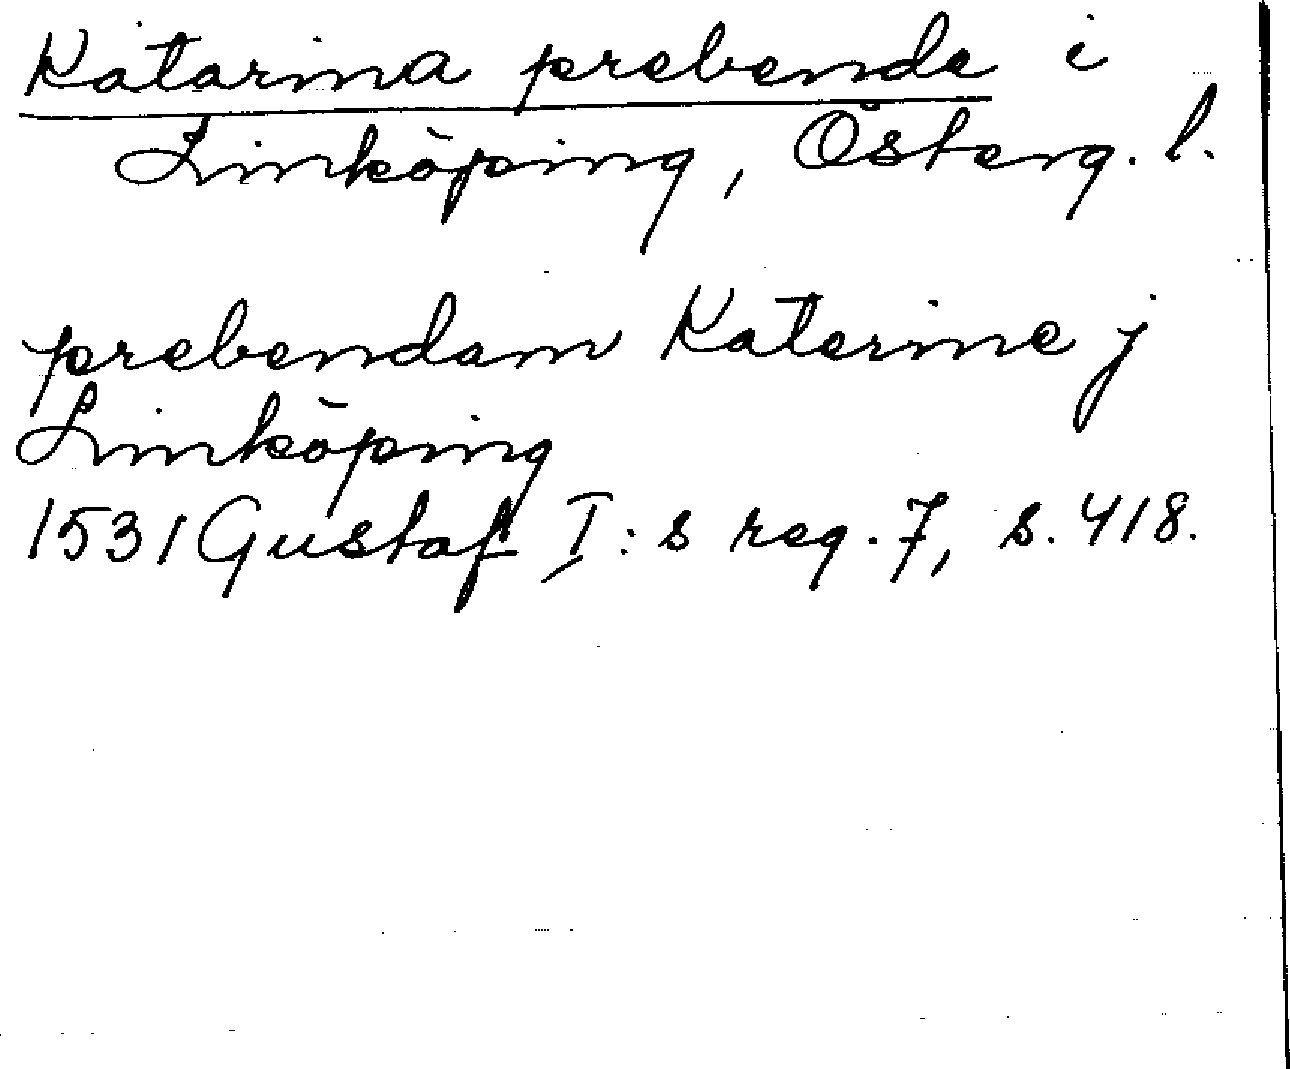 Katarina prebende i
Linköping, Österg. l.
prebendam Katerine j
Linköping
1531 Gustaf I:s reg. 7, s. 418.